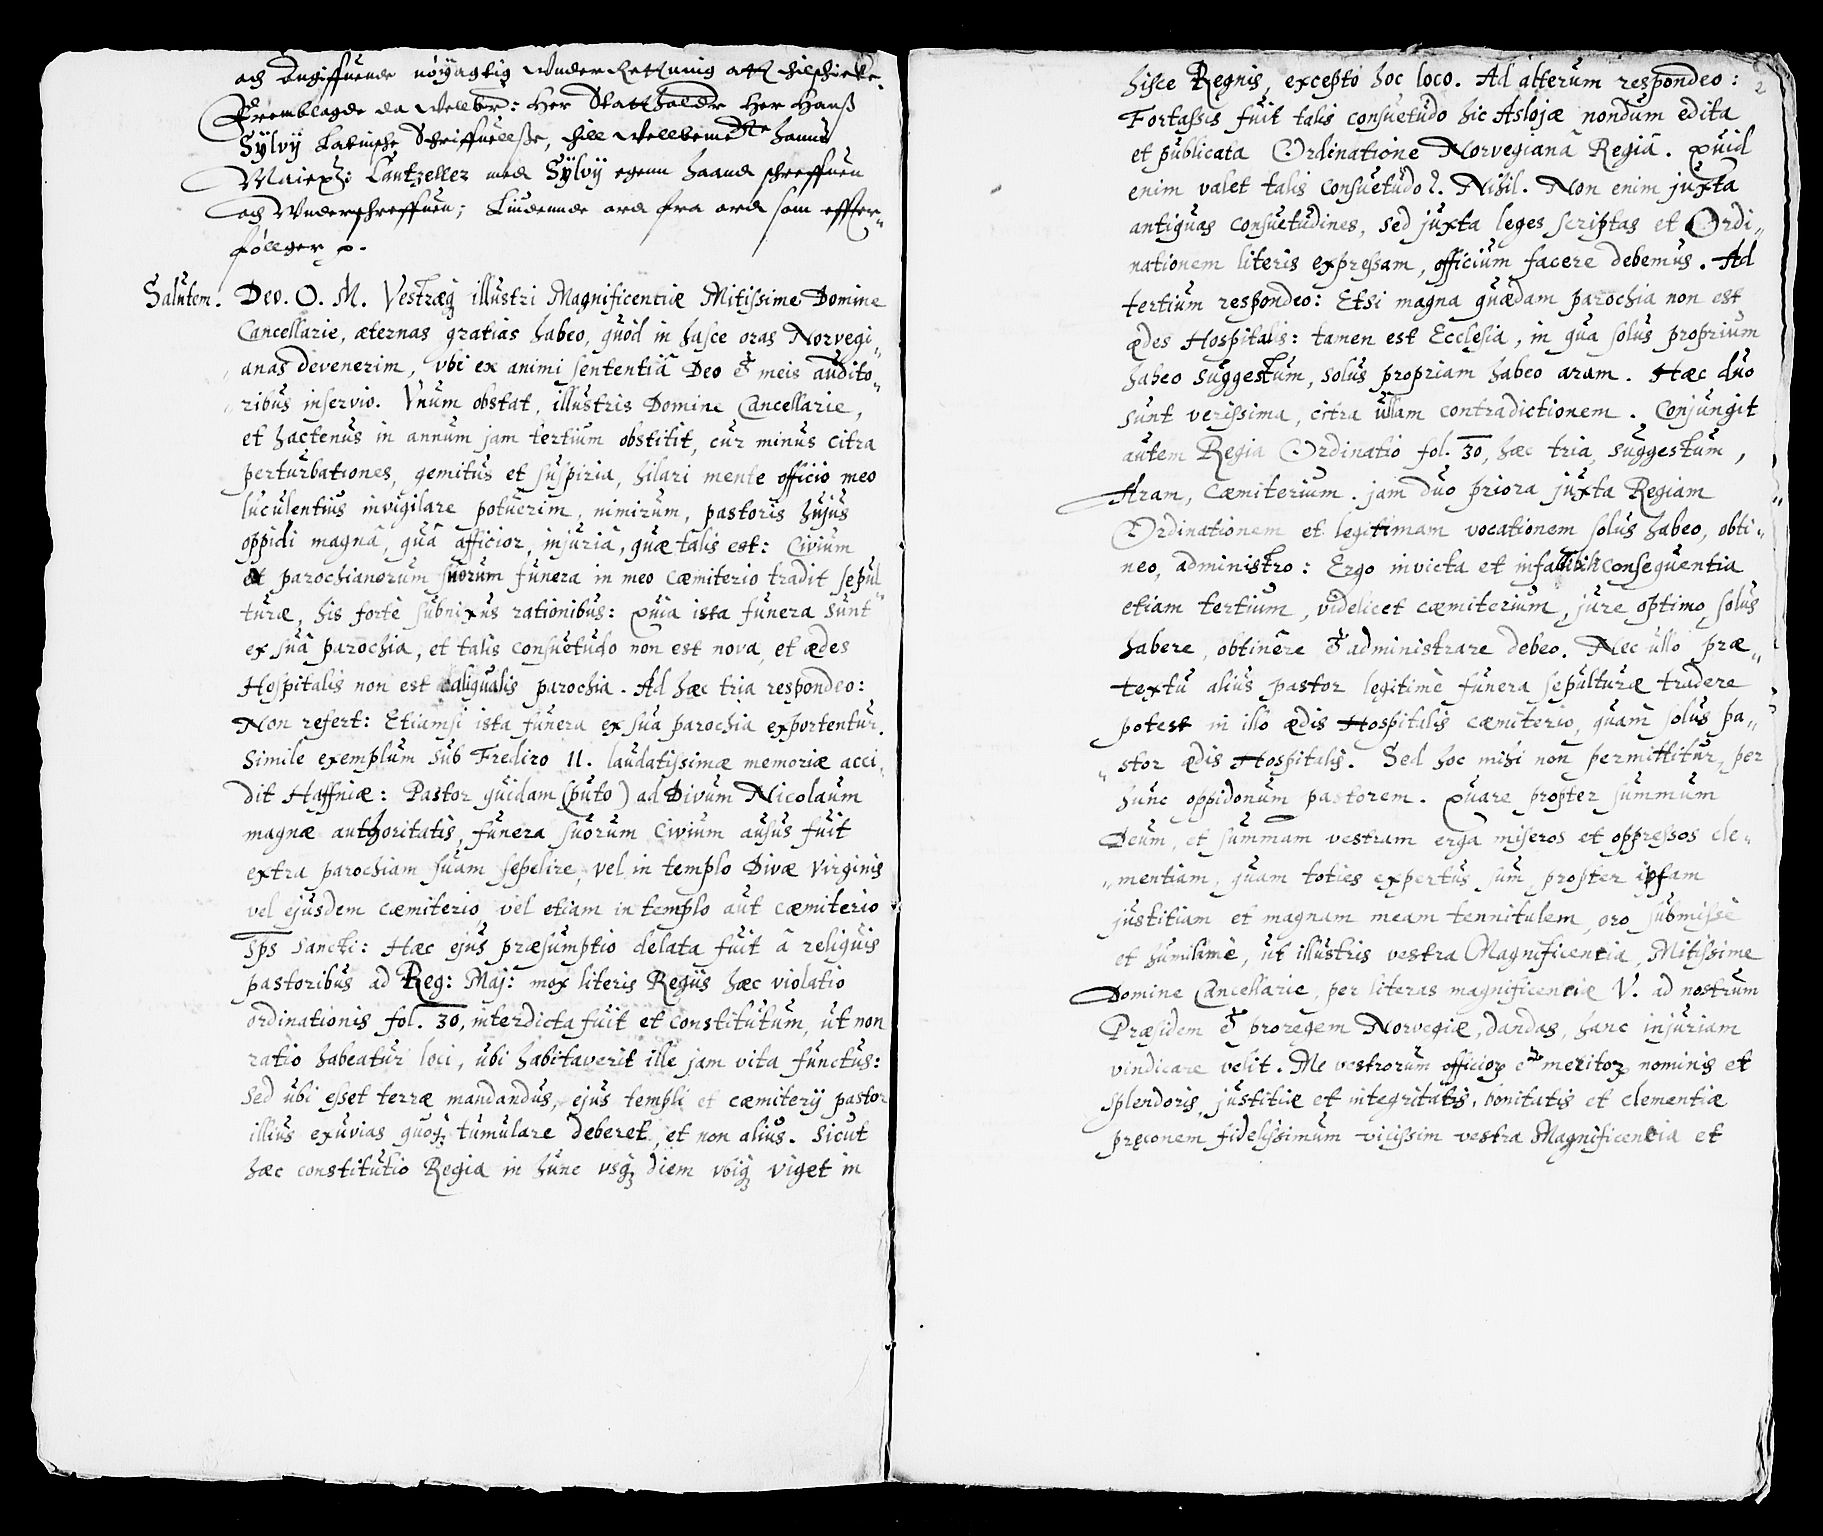 och Angiffuende nöÿagtig Vnderrettning att thilschicke.
Fremblagde da Welbr: Her Statholdr Her Hanß
Sÿlvÿ Latinsche Schriffuellße, thill Welbemte hanns
Maÿtz: Cantzeller med Sÿlvÿ egenn haand schreffuen
och Vnderschreffuen; Liudennde ord fra ord som effter„
föllger
Salutem. Deo. O. M. Vestræq illustri Magnificentiæ Mitissime Domine
Cancellarie, æternas gratias habeo, quòd in hasce oras Norvegi„
anas devenerim, vbi ex animi sententiâ Deo & meis audito„
ribus inservio. Vnum obstat, illustris Domine Cancellarie,
et hactenus in annum jam tertium obstitit, cur minus citra
perturbationes, gemitus et suspiria, hilari mente officio meo
luculentius invigilare potuerim, nimirum, pastoris hujus
oppidi magnâ, quâ afficior, injuriâ, quæ talis est: Civium
et parochianorum suorum funera in meo cæmiterio tradit sepul„
turæ, his fortè subnixus rationibus: Quia ista funera sunt
ex suâ parochia, et talis consuetudo non est nova, et ædes
Hospitalis non est aliqualis parochia. Ad hæc tria respondeo:
Non refert: Etiamsi ista funera ex sua parochia exportentur.
Simile exemplum sub Frediro II. laudatissimæ memoriæ acci„
dit Haffniæ: Pastor quidam (puto) ad Divum Nicolaum
magnæ authoritatis, funera suorum Civium ausus fuit
extra parochiam suam sepelire, vel in templo Divæ Virginis
vel ejusdem cæmiterio, vel etiam in templo aut cæmiterio
Sps Sancti: Hæc ejus præsumptio delata fuit â reliquis
pastoribus ad Reg: Maj: mox literis Regiis hæc violatio
ordinationis fol. 30, interdicta fuit et constitutum, ut non
ratio habeatur loci, ubi habitaverit ille jam vita functus:
Sed ubi esset terræ mandandus, ejus templi et cæmiterij pastor
illius exuvias quoq tumulare deberet, et non alius. Sicut
hæc constitutio Regia in hunc vsq diem vbiq viget in
2
hisce Regnis, excepto hoc loco. Ad alterum respondeo:
Fortassis fuit talis consuetudo hic Aslojæ nondum edita
et publicata Ordinatione Norvegianâ Regiâ. Quid
enim valet talis consuetudo? Nihil. Non enim juxta
antiquas consuetudines, sed juxta leges scriptas et Ordi„
nationem literis expressam, officium facere debemus. Ad
tertium respondeo: Etsi magna quædam parochia non est
ædes Hospitalis: tamen est Ecclesia, in qua solus proprium
habeo suggestum, solus propriam habeo aram. Hæc duo
sunt verissima, citra ullam contradictionem. Conjungit
autem Regia Ordinatio fol. 30, hæc tria, suggestum,
Aram, Cæmiterium. jam duo priora juxta Regiam
Ordinationem et legitimam vocationem solus habeo, obti„
neo, administro: Ergo invicta et infallibili consequentia
etiam tertium, videlicet cæmiterium, jure optimo, solus
habere, obtinêre & administrare debeo. Nec ullo præ„
textu alius pastor legitimè funera sepulturæ tradere
potest in illo ædis Hospitalis cæmiterio, quàm solus pa„
„stor ædis Hospitalis. Sed hoc mihi non permittitur, per
hunc oppidonum pastorem. Quare propter summum
Deum, et summam vestram erga miseros et oppressos cle„
„mentiam, quam toties expertus sum, propter ipsam
justitiam et magnam meam tennitulem, oro submissè
et humilimè, ut illustris vestra Magnificentia, Mitissime
Domine Cancellarie, per literas magnificentiæ V. ad nostrum
Præsidem & proregem Norvegiæ, dandas, hanc injuriam
vindicare velit. Me vestrorum officioꝝ & meritoꝝ nominis et
splendoris, justitiæ et integritatis, bonitatis et clementiæ
præconem fidelissimum vicissim vestra Magnificentia et